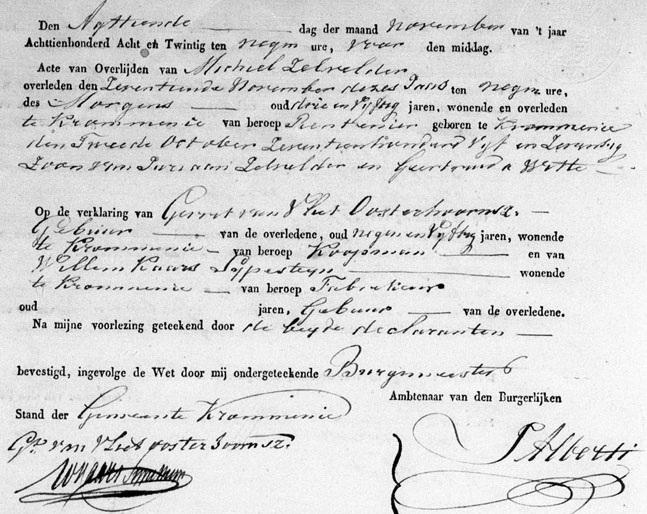 Den Agttiende dag der maand November van 't jaar
Achttienhonderd Acht en Twintig ten negen ure, voor den middag.
Acte van Overlijden van Michiel Zelvelder
overleden den Zeventiende November dezes Jaars ten negen ure,
des Morgens oud drie en Vijftig jaren, wonende en overleden
te Krommenie van beroep Rentenier geboren te Krommenie
den Tweede October Zeventienhonderd Vijf en Zeventig
Zoon van Zelvelder en Geertruida Witte
Op de verklaring van Gerret van Vliet Oosterhoornsz.
Gebuur van de overledene, oud negen en Vijftig jaren, wonende
te Krommenie van beroep Koopman en van
Willem Kaars Sijpesteyn wonende
te Krommenie van beroep Fabrikeur
oud jaren, Gebuur van de overledene.
Na mijne voorlezing geteekend door de beyde declaranten
bevestigd, ingevolge de Wet door mij ondergeteekende Burgmeester
Ambtenaar van den Burgerlijken
Stand der Gemeente Krommenie
Gt. van Vliet oosterhoornsz.
Alberti